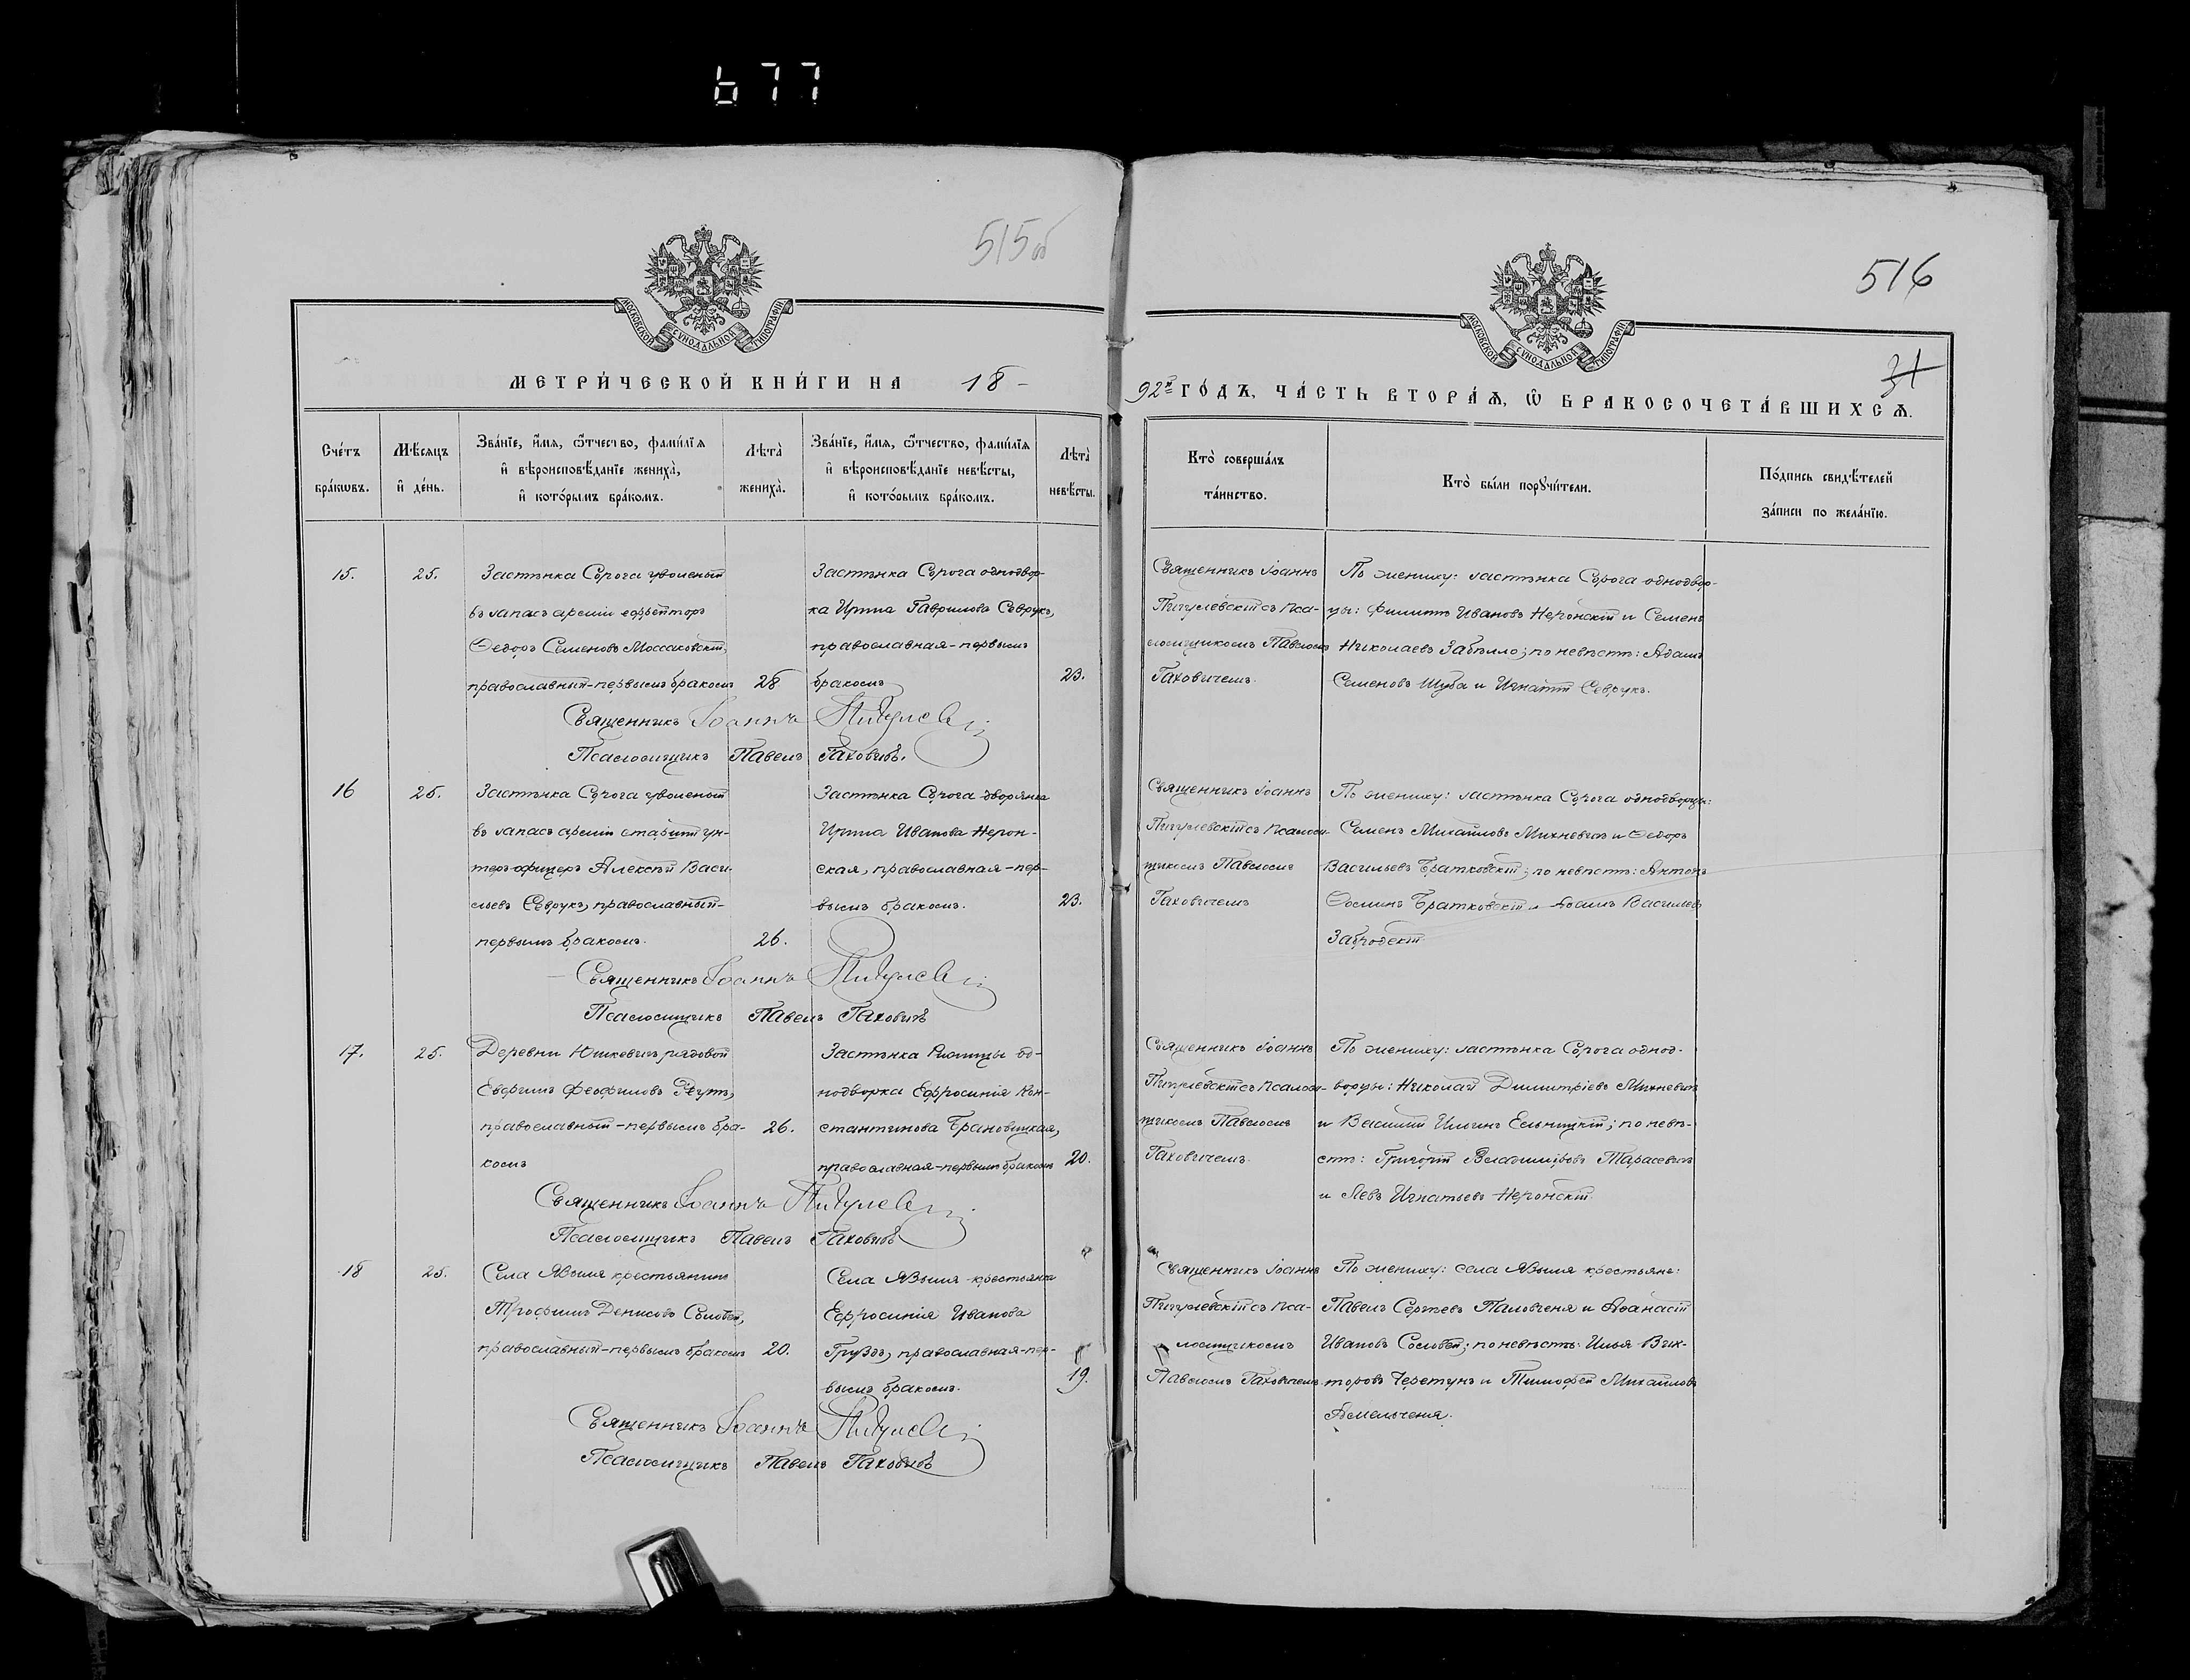 677
515об
МОСКОВСКОЙ СѴНОДАЛЬНОЙ ТИПОГРАФІИ
МЕТРИ́ЧЕСКОЙ КНИ́ГИ НА 18-
Сче́тъ бра́кѡвъ.
Мѣ́сяцъ и҆ де́нь.
Зва́нїе, и҆́мѧ, ѻ҆́тчество, фами́лїѧ
и҆ вѣроисповѣ́данїе жениха̀,
и҆ кото́рымъ бра́комъ.
Лѣ́та̀ жениха̀.
Зва́нїе, и҆́мѧ, ѻ҆́тчество, фами́лїѧ
и҆ вѣроисповѣ́данїе невѣ́сты,
и҆ кото́рымъ бра́комъ.
Лѣ́та̀ невѣ́сты.
15.
25.
Застѣнка Сорога уволеный
въ запасъ арміи ефрейторъ
Ѳедоръ Семеновъ Моссаковскій,
православный-первымъ бракомъ
28
Застѣнка Сорога однодвор-
ка Ирина Гаврилова Севрукъ,
православная-первымъ
бракомъ
23.
Священникъ Іоаннъ
Псаломщикъ Павелъ Гаховичъ.
16
25.
Застѣнка Сорога уволеный
въ запасъ арміи старшій ун-
теръ-офицеръ Алексѣй Васи-
льевъ Севрукъ, православный-
первымъ бракомъ.
26.
Застѣнка Сорога дворянка
Ирина Иванова Нерон-
ская, православная-пер-
вымъ бракомъ.
23.
Священникъ Іоаннъ
Псаломщикъ Павелъ Гаховичъ
17.
25.
Деревни Юшкевичъ рядовой
Евфимъ Феофиловъ Реутъ,
православный-первымъ бра-
комъ
26.
Застѣнка од-
нодворка Ефросинія Кон-
стантинова Брановицкая,
православная-первымъ бракомъ
20.
Священникъ Іоаннъ
Псаломщикъ Павелъ Гаховичъ
18
25.
Села Явыля крестьянинъ
Трофимъ Денисовъ Соловей,
православный-первымъ бракомъ
20.
Села Явыля крестьянка
Ефросинія Иванова
Груздъ, православная-пер-
вымъ бракомъ.
19.
Священникъ Іоаннъ
Псаломщикъ Павелъ Гаховичъ
516
31
МОСКОВСКОЙ СѴНОДАЛЬНОЙ ТИПОГРАФІИ
92й ГО́ДЪ, ЧА́СТЬ ВТОРА́Ѧ, Ѡ҆ БРАКОСОЧЕТА́ВШИХСѦ.
Кто̀ соверша́лъ
та́инство.
Кто̀ бы́ли порꙋчи́тели.
По́дпись свидѣ́телей
за́писи по жела́нїю.
Священникъ Іоаннъ
Пигулевскій съ пса-
ломщикомъ Павломъ
Гаховичемъ.
По жениху: застѣнка Сорога однодвор-
цы: Филиппъ Ивановъ Неронскій и Семенъ
Николаевъ Забѣлло; по невѣстѣ: Адамъ
Семеновъ Шуба и Игнатій Севрукъ.
Священникъ Іоаннъ
Пигулевскій съ псалом-
щикомъ Павломъ
Гаховичемъ
По жениху: застѣнка Сорога однодворцы:
Семенъ Михайловъ Михневичъ и Ѳедоръ
Васильевъ Братковскій; по невѣстѣ: Антонъ
Ѳоминъ Братковскій и Адамъ Васильевъ
Священникъ Іоаннъ
Пигулевскій съ псалом-
щикомъ Павломъ
Гаховичемъ.
По жениху: застѣнка Сорога однод-
ворцы: Николай Димитріевъ Михневичъ
и Василій Ильинъ Ельницкій; по невѣ-
стѣ: Григорій Владиміровъ Тарасевичъ
и Левъ Игнатьевъ Неронскій
Священникъ Іоаннъ
Пигулевскій съ пса-
ломщикомъ
Павломъ Гаховичемъ.
По жениху: села Явыля крестьяне:
Павелъ Сергѣевъ и Аѳанасій
Ивановъ Соловей; по невѣстѣ: Илья Вик-
торовъ Черетунъ и Тимофей Михайловъ
Амельченя.